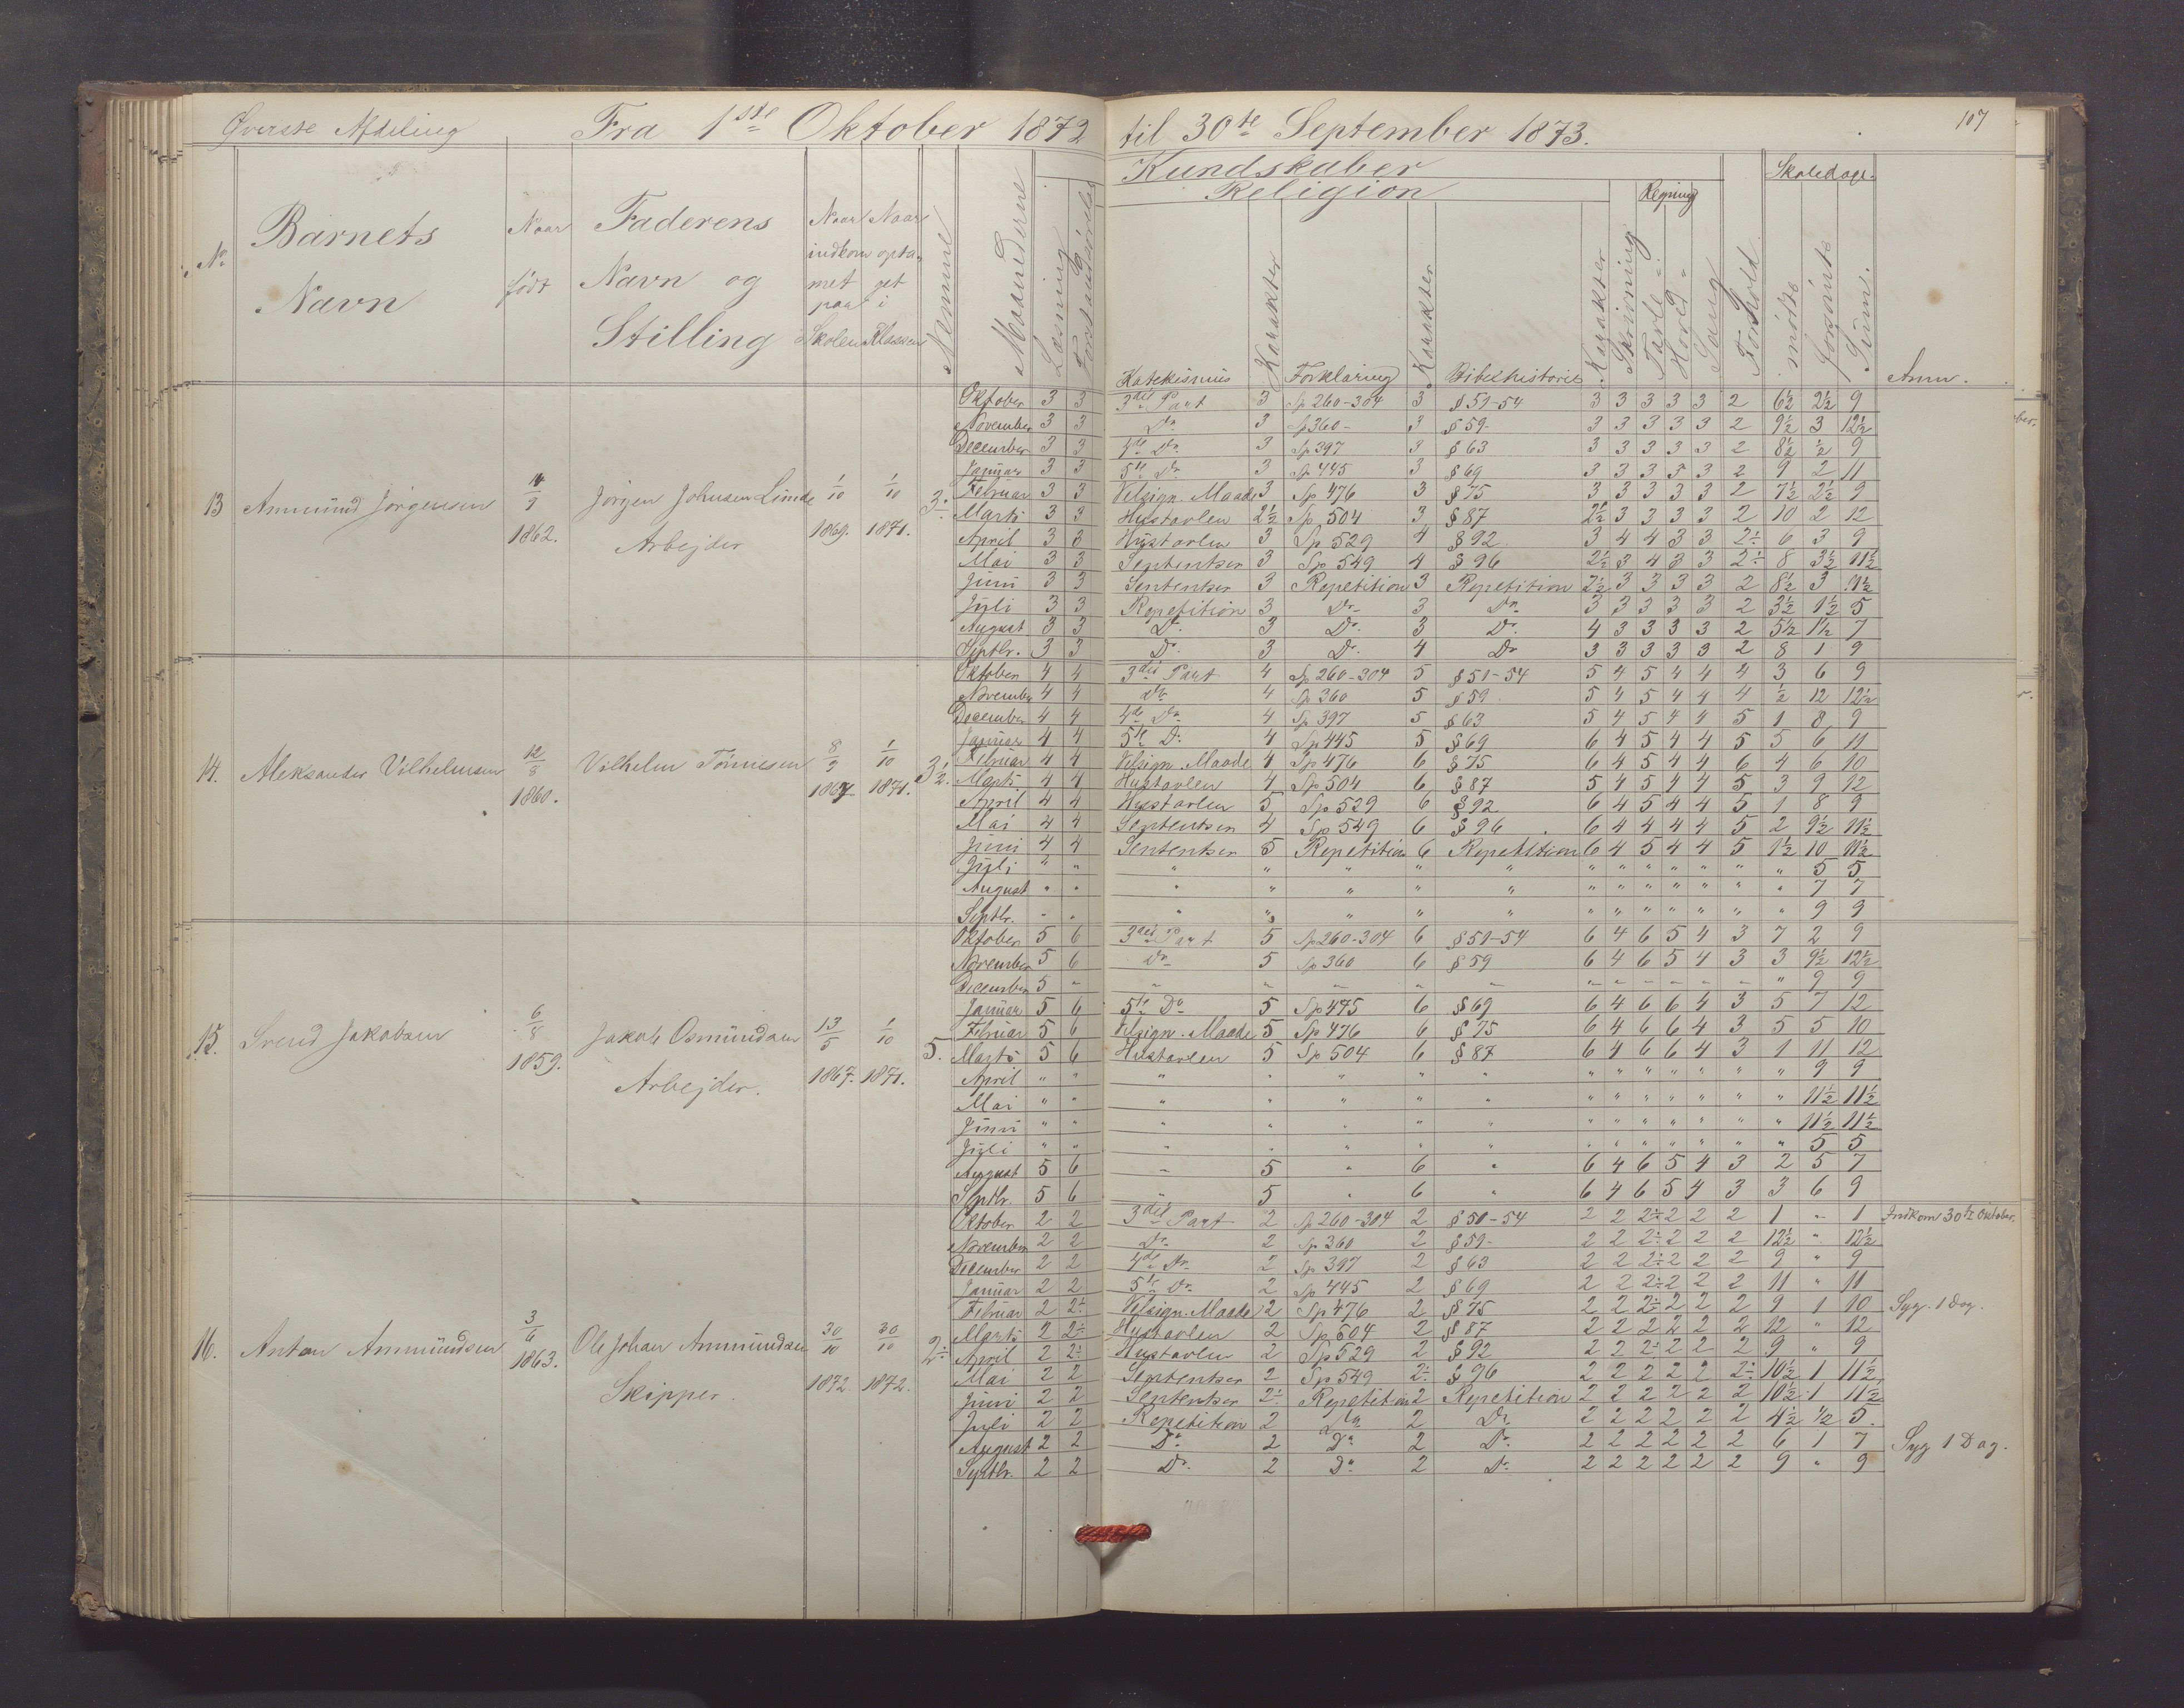 Øverste Afdeling Fra 1ste Oktober 1872 til 30te September 1873. 107
Kundskaber Skoledage.
Religion Regning
No Barnets Navn Naar født Faderens Navn og Stilling Naar indkommet paa Skolen Naar optaget i Klassen Nemme Maanderne Læsning Forstandsøvelse Katekismus Karakter Forklaring Karakter Bibelhistorie Karakter Skrivning Tavle Hoved Sang Forhold mødte forsømte Sum. Anm.
13 Ammund Jørgensen 1862. Jørgen Johnsen Linde Arbejder 1/10 1869. 1/10 1871. 3÷
Oktober 3 3 3die Part 3 Sp 260-304 3 § 51-54 3 3 3 3 3 2 6½ 2½ 9
November 3 3 Do 3 Sp 360- 3 § 59- 3 3 3 3 3 2 9½ 3 12½
December 3 3 4de Do 3 Sp 397 3 § 63 3 3 3 3 3 2 8½ ½ 9
Januar 3 3 5te Do 3 Sp 445 3 § 69 3 3 3 3 3 2 9 2 11
Februar 3 3 Velsign. Maade 3 Sp 476 3 § 75 3 3 3 3 3 2 7½ 2½ 9
Marts 3 3 Hustavlen 2½ Sp 504 3 § 87 2½ 3 3 3 3 2 10 2 12
April 3 3 Hustavlen 3 Sp 529 4 § 92 3 4 4 3 3 2÷ 6 3 9
Mai 3 3 Sententser 3 Sp 549 4 § 96 2½ 3 4 3 3 2÷ 8 3½ 11½
Juni 3 3 Sententser 3 Repetition 3 Repetition 2½ 3 3 3 3 2 8½ 3 11½
Juli 3 3 Repetition 3 Do 3 Do 3 3 3 3 3 2 3½ 1½ 5
August 3 3 Do 3 Do 3 Do 4 3 3 3 3 2 5½ 1½ 7
Septbr. 3 3 Do 3 Do 4 Do 3 3 3 3 3 2 8 1 9
14. Aleksander Vilhelmsen 12/8 1860. Vilhelm Tönnesen 8/9 1867 1/10 1871. 3½.
Oktober 4 4 3die Part 4 Sp 260-304 5 § 51-54 5 4 5 4 4 4 3 6 9
November 4 4 do 4 Sp 360 5 § 59 5 4 5 4 4 4 ½ 12 12½
December 4 4 4de Do 4 Sp 397 5 § 63 5 4 5 4 4 5 1 8 9
Januar 4 4 5te Do 4 Sp 445 5 § 69 6 4 5 4 4 5 5 6 11
Februar 4 4 Velsign. Maade 4 Sp 476 6 § 75 6 4 5 4 4 6 4 6 10
Marts 4 4 Hustavlen 4 Sp 504 6 § 87 5 4 5 4 4 5 3 9 12
April 4 4 Hustavlen 5 Sp 529 6 § 92 6 4 5 4 4 5 1 8 9
Mai 4 4 Sententser 4 Sp 549 6 § 96 6 4 4 4 4 5 2 9½ 11½
Juni 4 4 Sententser 5 Repetition 6 Repetition 6 4 5 4 4 5 1½ 10 11½
Juli " " " " " " " " " " " " " " 5 5
August " " " " " " " " " " " " " " 7 7
Septbr. " " " " " " " " " " " " " " 9 9
15. Svend Jakobsen 6/8 1859. Jakob Osmundsen Arbejder. 13/5 1867. 1/10 1871. 5.
Oktober 5 6 3die Part 5 Sp 260-304 6 § 51-54 6 4 6 5 4 3 7 2 9
November 5 6 Do 5 Sp 360 6 § 59 6 4 6 5 4 3 3 9½ 12½
December 5 " " " " " " " " " " " " " 9 9
Januar 5 6 5te Do 5 Sp 445 6 § 69 6 4 6 6 4 3 5 7 12
Februar 5 6 Velsign. Maade 5 Sp 476 6 § 75 6 4 6 6 4 3 5 5 10
Marts 5 6 Hustavlen 5 Sp 504 6 § 87 6 4 6 6 4 3 1 11 12
April " " " " " " " " " " " " " " 9 9
Mai " " " " " " " " " " " " " " 11½ 11½
Juni " " " " " " " " " " " " " " 11½ 11½
Juli " " " " " " " " " " " " " " 5 5
August 5 6 " 5 " 6 " 6 4 6 5 4 3 2 5 7
Septbr. 5 6 " 5 " 6 " 6 4 6 5 4 3 3 6 9
16. Anton Ammundsen 3/6 1863. Ole Johan Ammundsen Skipper. 30/10 1872 30/10 1872. 2÷
Oktober 2 2 3die Part 2 Sp 260-304 2 § 51-54 2 2 2÷ 2 2 2 1 " 1 Indkom 30te Oktober.
November 2 2 Do 2 Sp 360 2 § 59- 2 2 2÷ 2 2 2 12½ " 12½
December 2 2 4de Do 2 Sp 397 2 § 63 2 2 2÷ 2 2 2 9 " 9
Januar 2 2 5te Do 2 Sp 445 2 § 69 2 2 2÷ 2 2 2 11 " 11
Februar 2 2÷ Velsign. Maade 2 Sp 476 2 § 75 2 2 2÷ 2 2 2 9 1 10 Syg. 1 Dag.
Marts 2 2÷ Hustavlen 2 Sp 504 2 § 87 2 2 2 2 2 2 12 " 12
April 2 2÷ Hustavlen 2 Sp 529 2 § 92 2 2 2÷ 2 2 2 9 " 9
Mai 2 2 Sententser 2 Sp 549 2÷ § 96 2 2 2 2 2 2÷ 10½ 1 11½
Juni 2 2 Sententser 2÷ Repetition 2 Repetition 2 2 2 2 2 2 10½ 1 11½
Juli 2 2 Repetition 2 Do 2 Do 2 2 2 2 2 2 4½ ½ 5.
August 2 2 Do 2 Do 2 Do 2 2 2 2 2 2 6 1 7 Syg 1 Dag.
Septbr. 2 2 Do 2 Do 2 Do 2 2 2 2 2 2 9 " 9